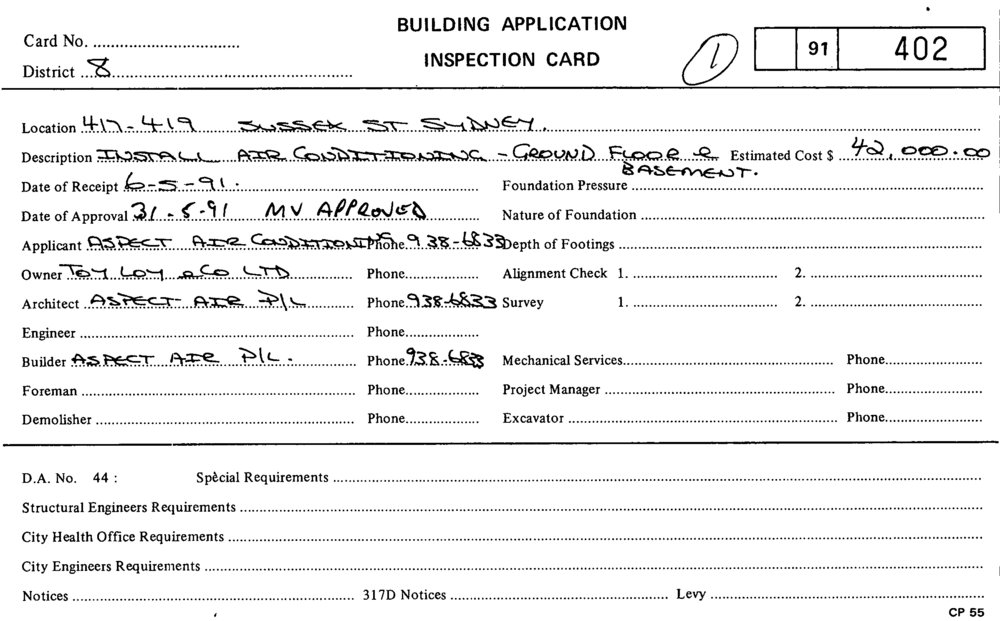 BUILDING APPLICATION
INSPECTION CARD
Card No. ......
District 8
1 91 402
Location 417-419 SUSSEX ST SYDNEY.
Description INSTALL AIR CONDITIONING - GROUND FLOOR & BASEMENT. Estimated Cost $ 42,000.00
Date of Receipt 6-5-91. Foundation Pressure
Date of Approval 31-5-91 MV APPROVED Nature of Foundation
Applicant ASPECT AIR CONDITIONING Phone 938-6833 Depth of Footings
Owner TOY LOY & CO LTD Phone Alignment Check 1. 2.
Architect ASPECT AIR P/L Phone 938-6833 Survey 1. 2.
Engineer Phone
Builder ASPECT AIR P/L. Phone 938-6833 Mechanical Services Phone
Foreman Phone Project Manager Phone
Demolisher Phone Excavator Phone
D.A. No. 44 : Special Requirements
Structural Engineers Requirements
City Health Office Requirements
City Engineers Requirements
Notices 317D Notices Levy
CP 55